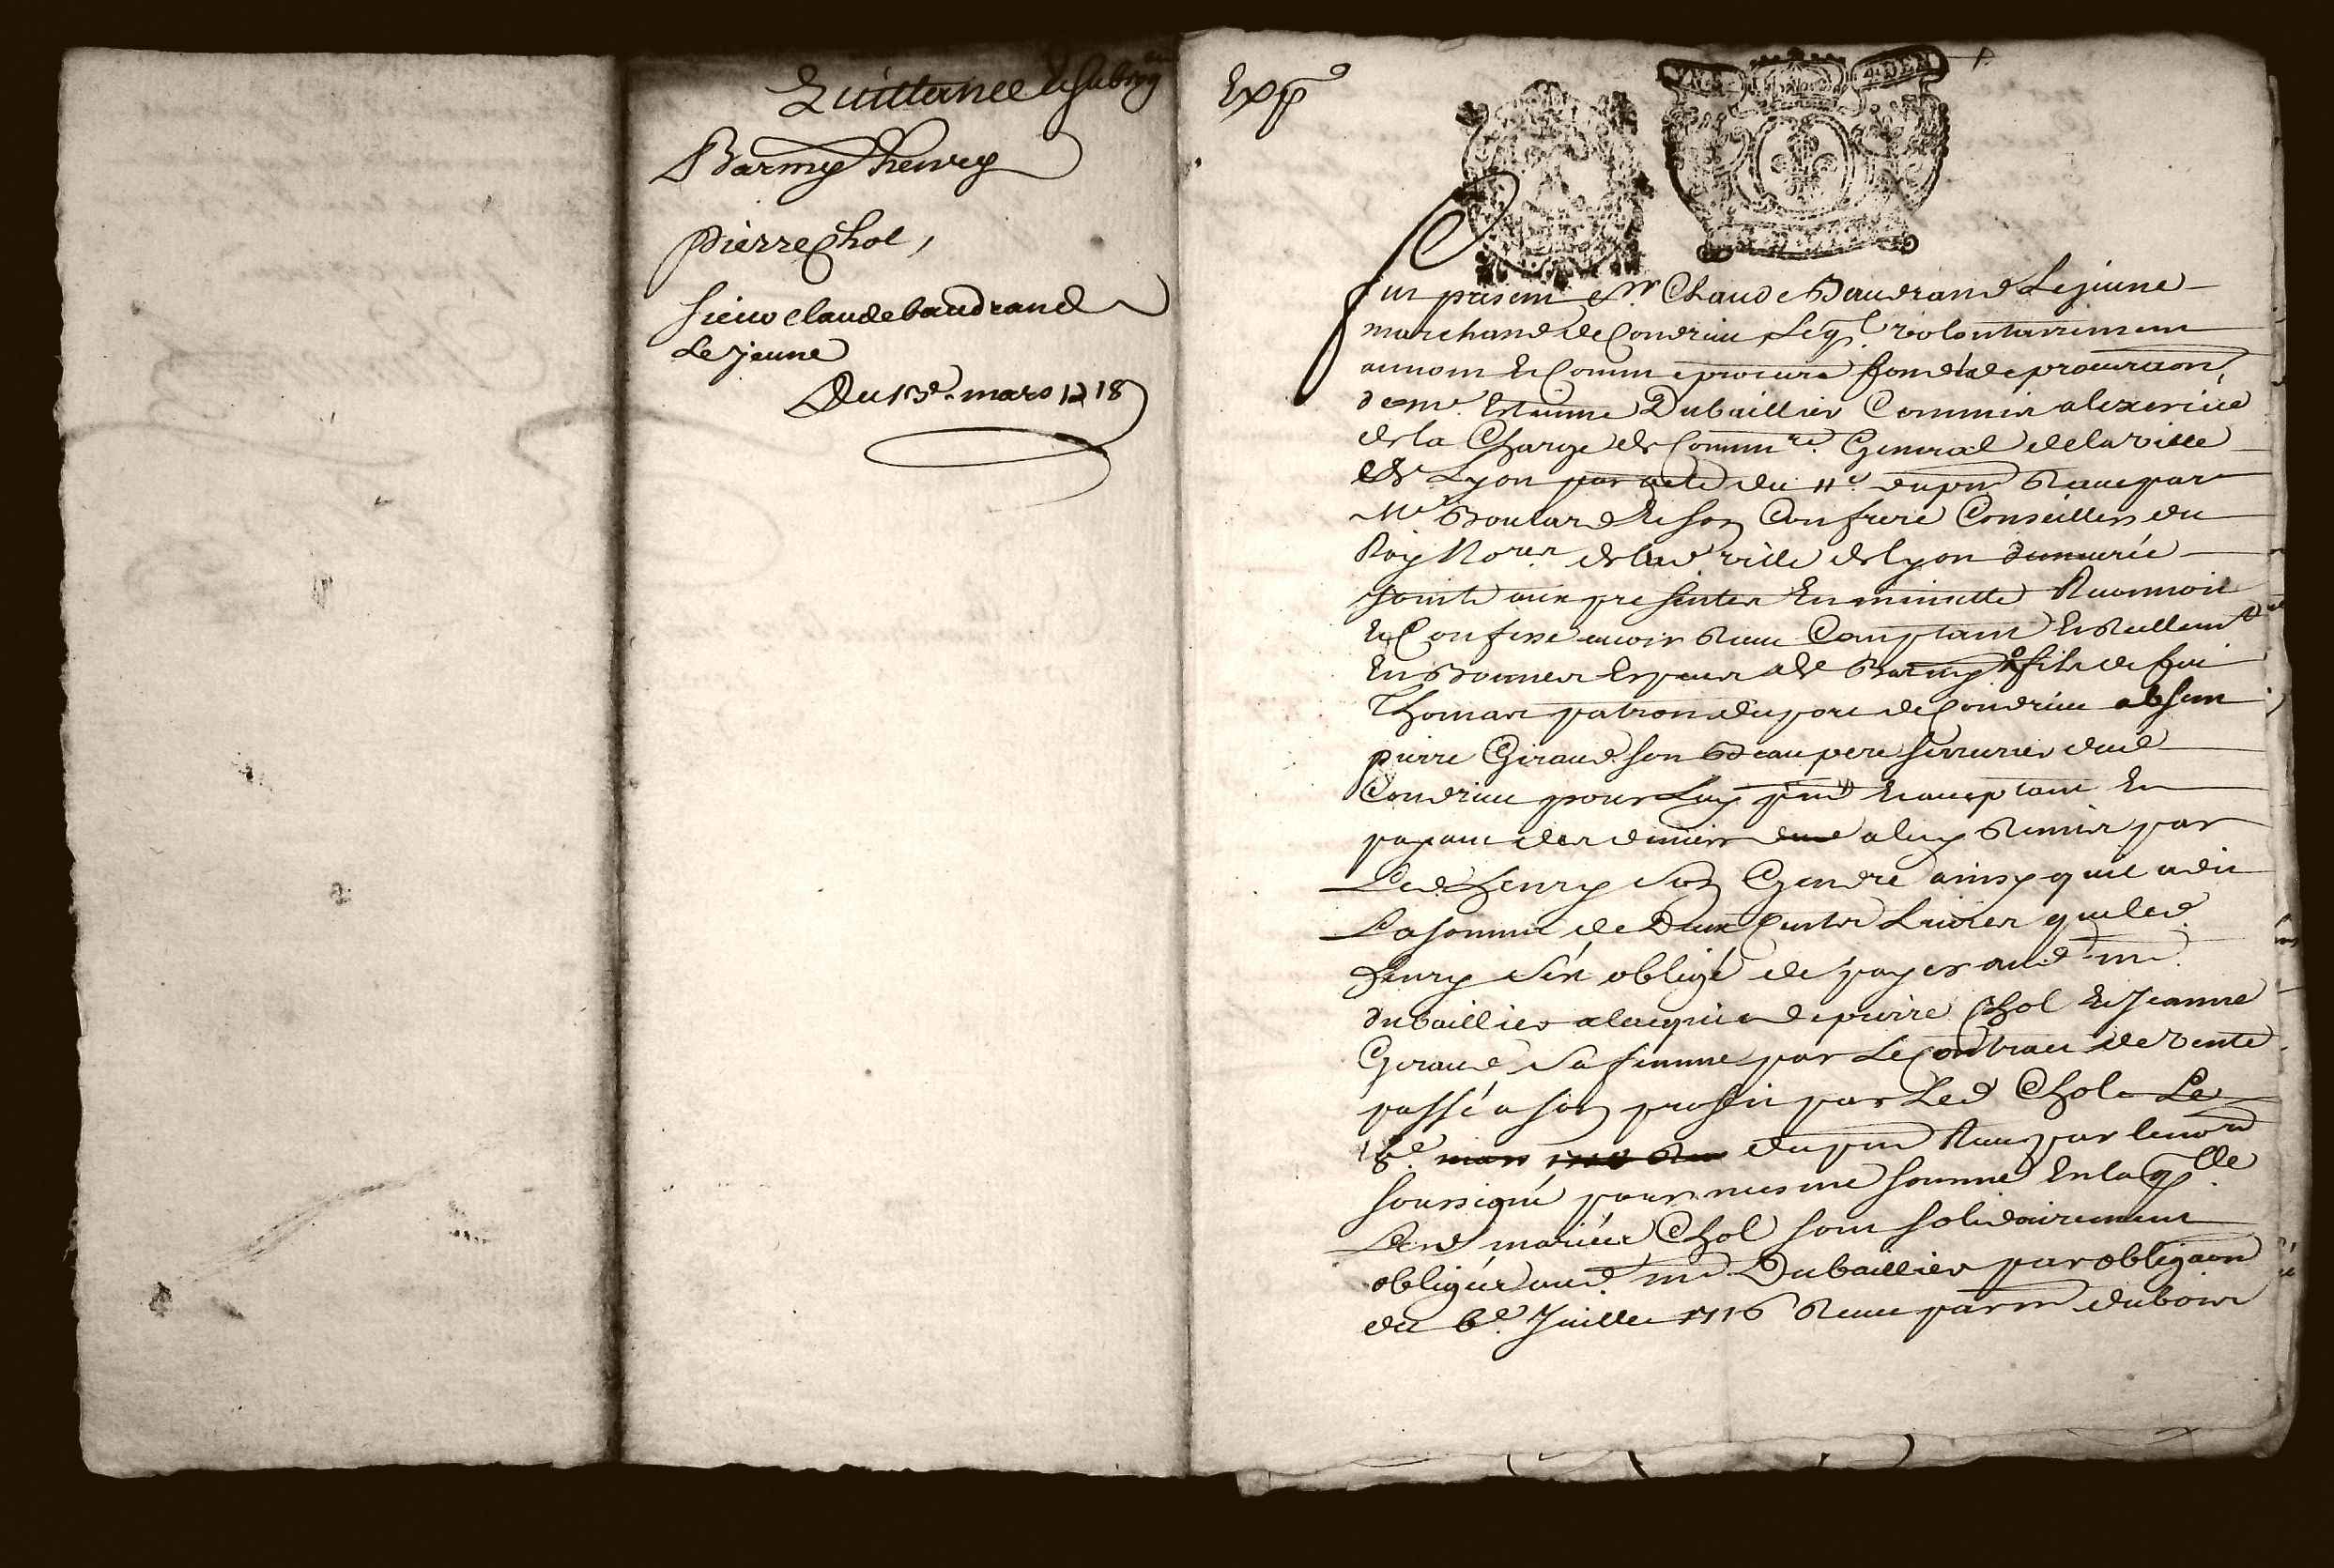 Quittance et subrog
Barmy henry
pierre Chol,
sieur claude baudrand
le jeune
Du 15e. mars 1718
Exp
4 DEN
fut present Sr. Claude Baudrand Lejeune
marchand de Condrieu Leql. volontairement
au nom et Comme procureur fondé de procuraon
de mr. Estienne Dubaillier Commis a lexercice
de la Charge de Commre. General de la ville
de Lyon par acte du 11e. du pnt Receu par
Me Boulard et son Confrere Conseillers du
Roy Nores. de lad. ville de lyon demeurée
jointe aux presentes En minutte Reconnoit
et Confesse avoir Receu Comptant et Reellemt
En Bonnes Especes de Barmy fils de feu
Thomas patron du port de Condrieu absent
pierre Giraud son Beaupere serrurier dud
Condrieu pour Luy pnt et acceptant En
payant des deniers a luy Remis par
Led henry son Gendre ainsy quil a dit
La somme de Deux Centz Livres que led.
henry sest obligé de payer aud. mr.
Dubaillier a lacquit de pierre Chol et Jeanne
Geraud sa femme par Le Contract de vente
passé a son profit par Led Chol Le
du pnt Receu par le nore
soussigné pour mesme somme En laqlle.
Lesd mariés Chol sont solidairement
obligés aud. mr Dubaillier par obligaon
du 6e. Juillet 1716 Receu par mr dubois